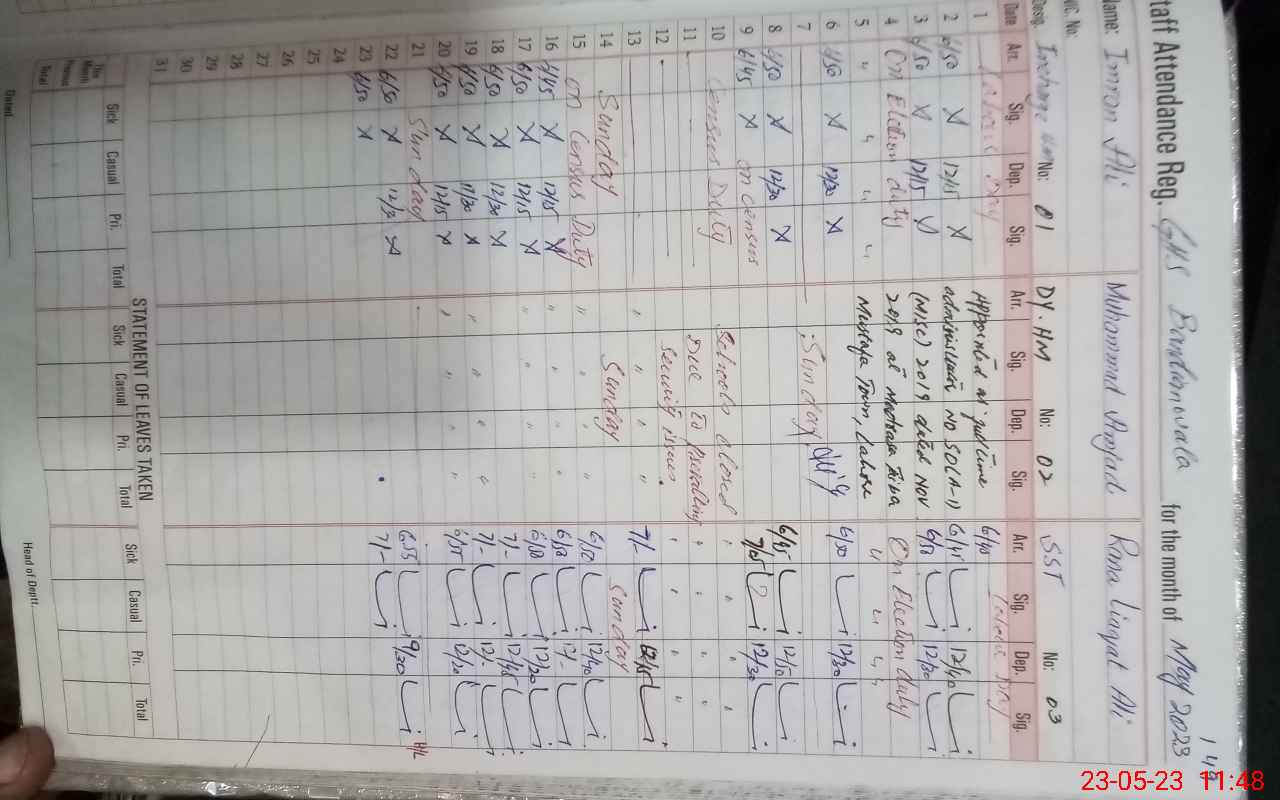 149
Staff Attendance Reg. GHS for the month of May 2023
Name: Imran Ali
Muhammad Amjad
Rana Liaqat Ali
NIC. No:
Desig. Incharge No: 01
DY. HM No: 02
SST No: 03
Date Arr. Sig. Dep. Sig. Arr. Sig. Dep. Sig. Arr. Sig. Dep. Sig.
1 Labour Day Appointed as 6/40 Labour Day
2 6/50 12/15 NO SO(A-1) 6/45 12/40
3 6/50 12/15 (MISC) 2019 dated Nov 6/50 12/30
4 On Election duty 2019 at On Election duty
5 " " " " Mustafa Town, Lahore " " " "
6 6/50 12/30 6/50 12/30
7 Sunday
8 6/50 12/30 6/45 12/50
9 6/45 on census 7/05 12/30
10 Census Duty Schools closed " " " "
11 Due to prevailing " " " "
12 security issues " " " "
13 " " " " 7/- 12/15
14 Sunday Sunday Sunday
15 On Census Duty " " " " 6/50 12/40
16 6/45 12/15 " " " " 6/50 12/-
17 6/50 12/15 " " " " 6/50 12/20
18 6/50 12/30 7/- 12/45
19 6/50 11/30 " " " " 7/- 12/-
20 6/50 12/15 " " " " 6/55 12/20
21 Sunday
22 6/50 12/30 6:55 9/30 H/L
23 6/50 7/-
24
25
26
27
28
29
30
31
STATEMENT OF LEAVES TAKEN
Sick Casual Pri. Total Sick Casual Pri. Total Sick Casual Pri. Total
This Month
Previous
Total
Dated
Head of Deptt.
23-05-23 11:48